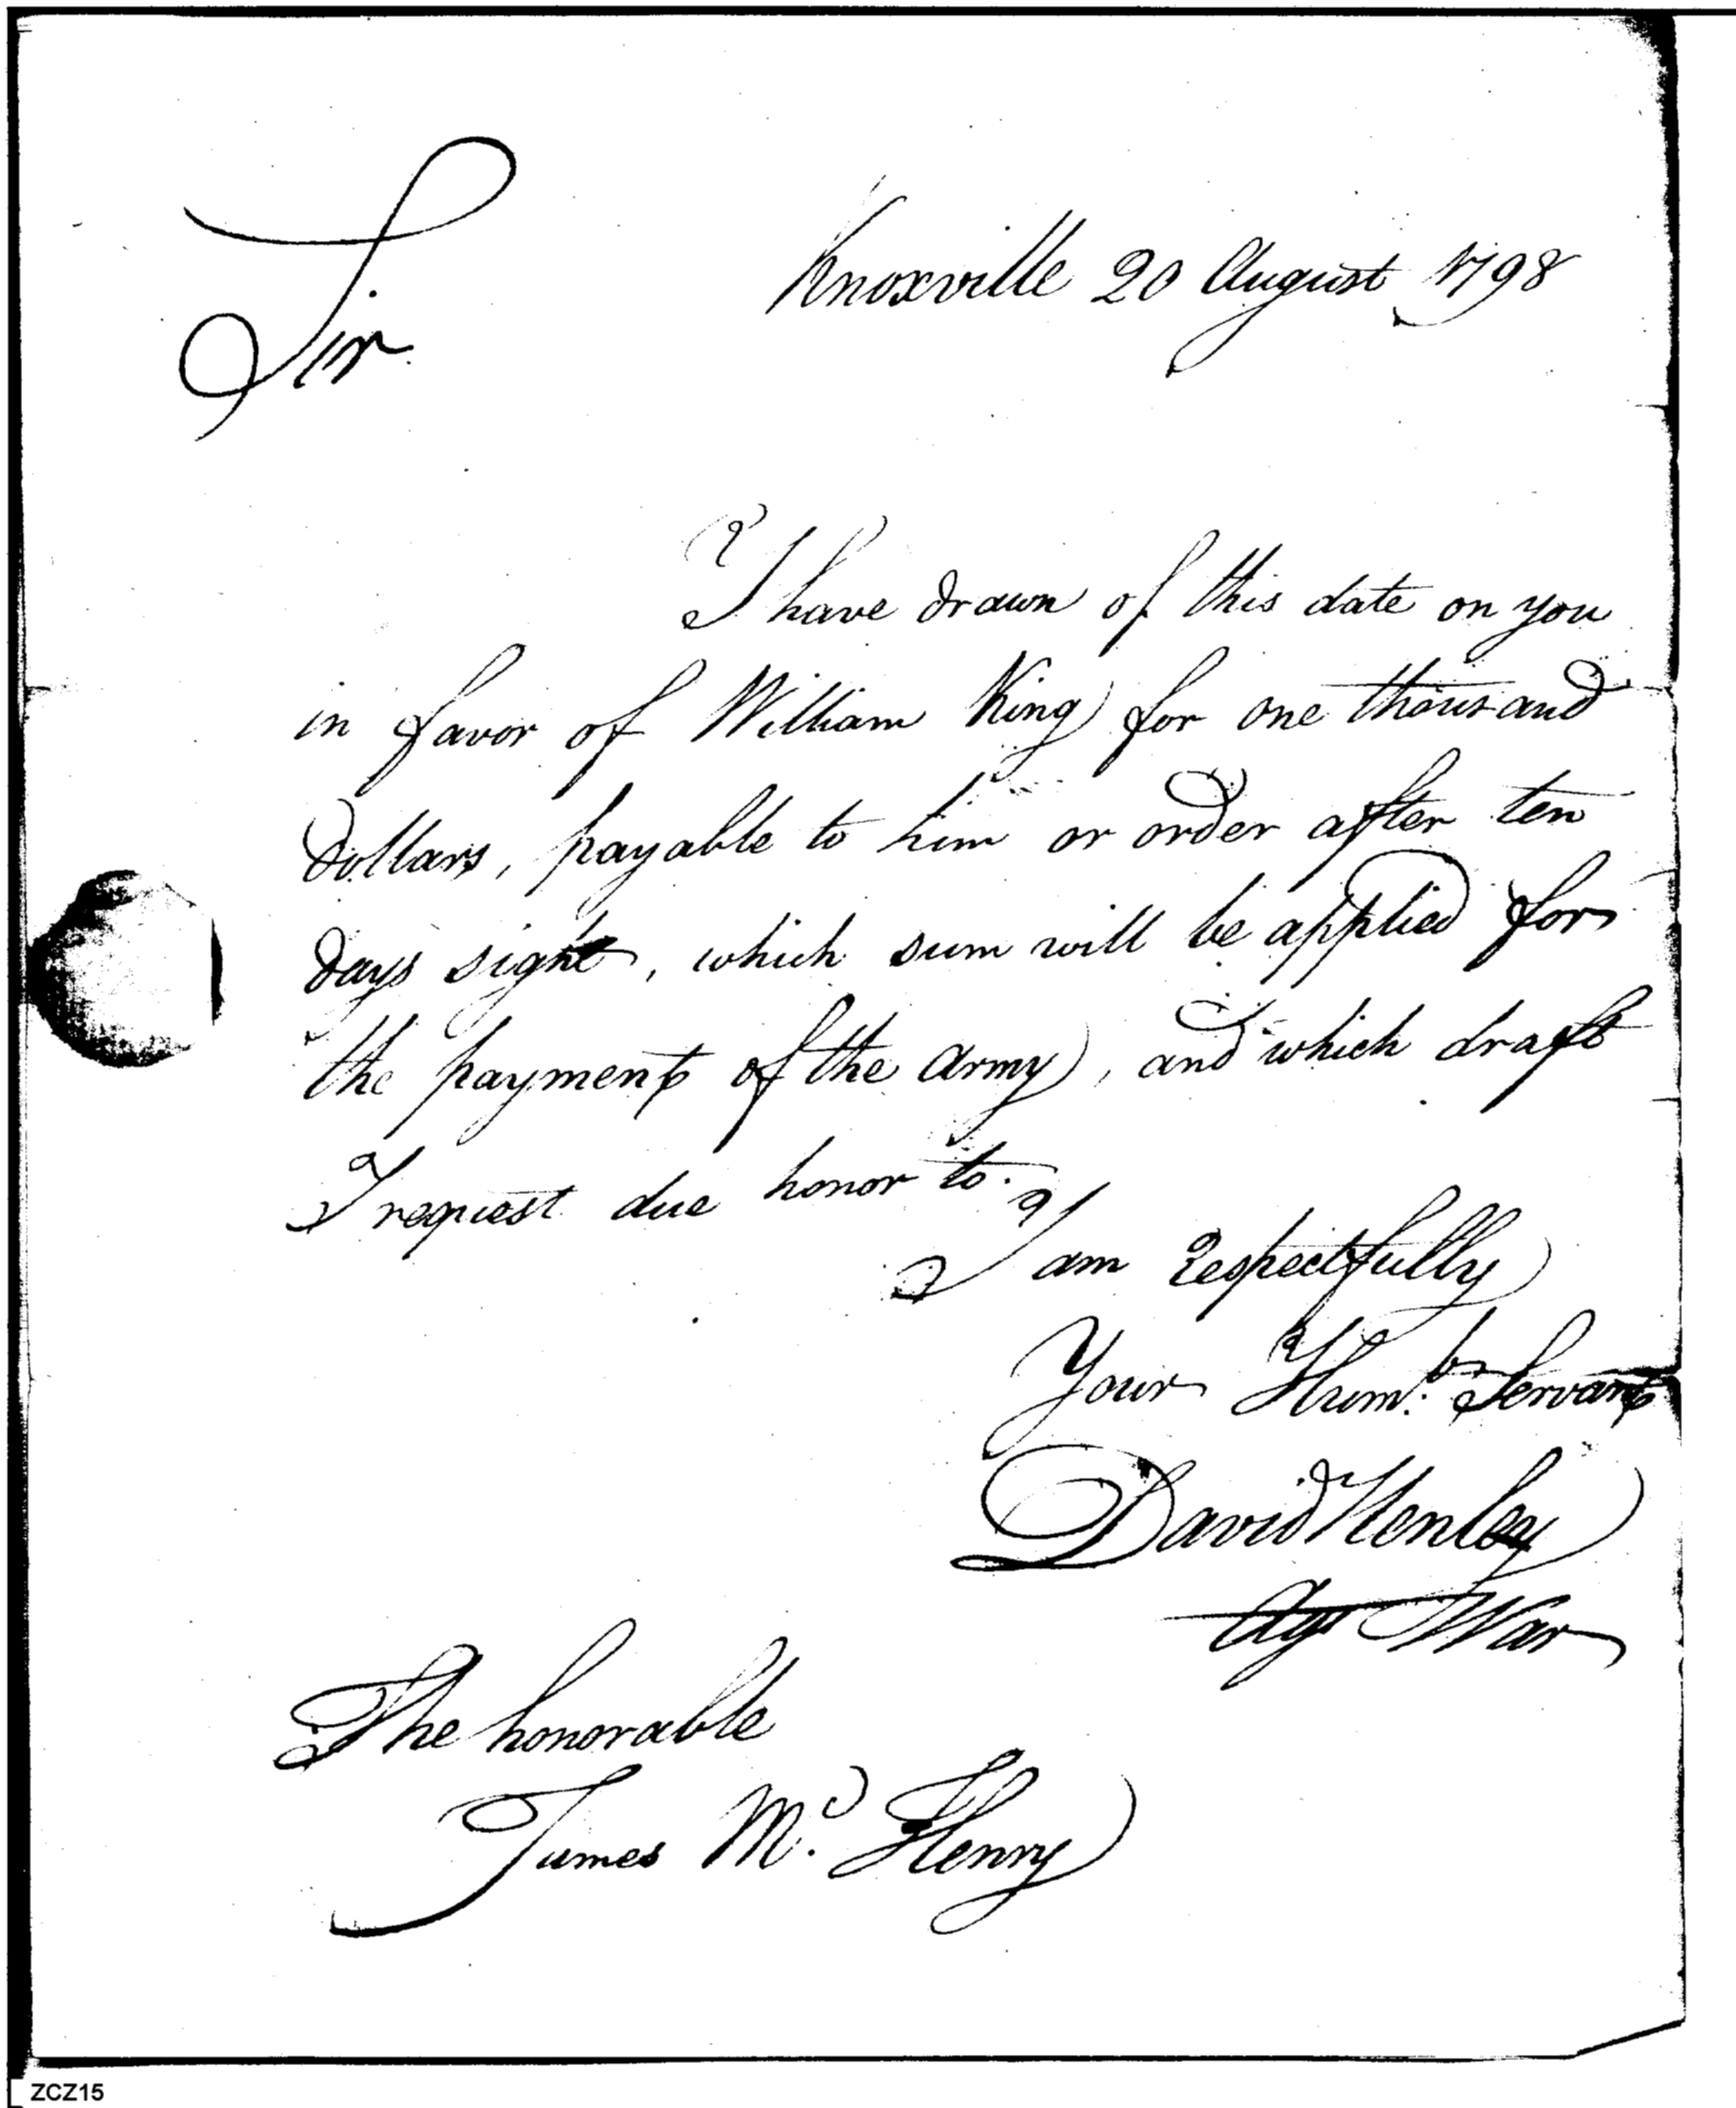 Knoxville 20 August 1798
Sir
I have drawn of this date on you
in favor of William King for one thousand
Dollars, payable to him or order after ten
days sight, which sum will be applied for
the payment of the Army, and which draft
I request due honor to.
I am Respectfully
Your Hum. bl Servant
David Henley
Agt War
The honorable
James Mc. Henry
ZCZ15